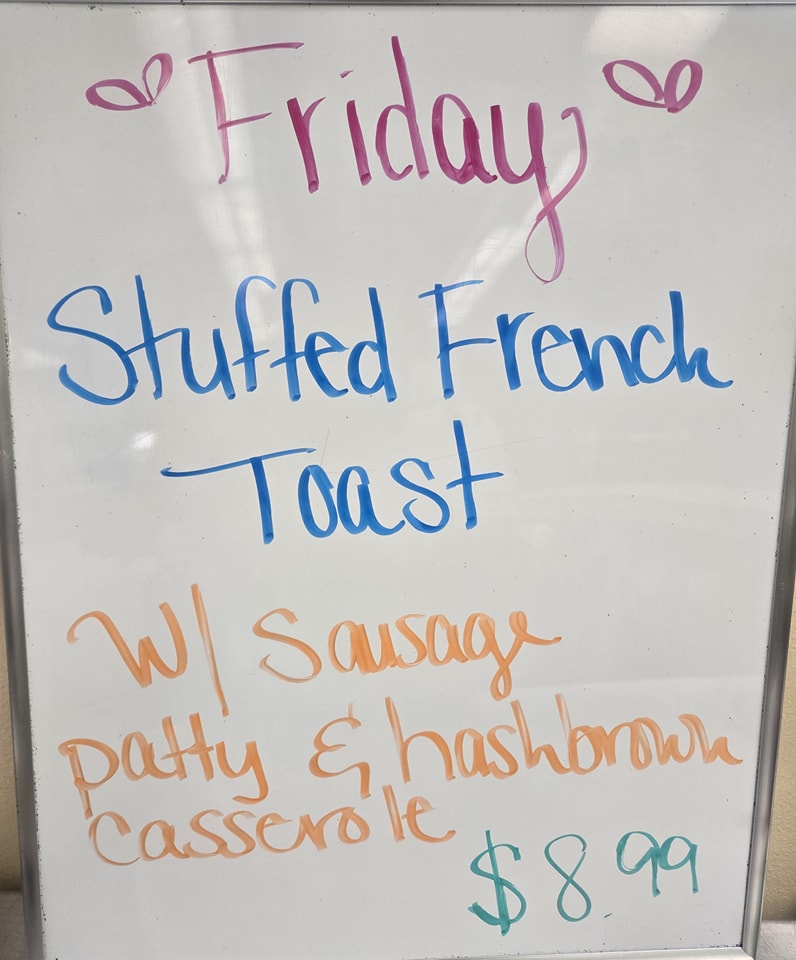 Friday
Stuffed French
Toast
W/ Sausage
patty & hashbrown
casserole
$8.99